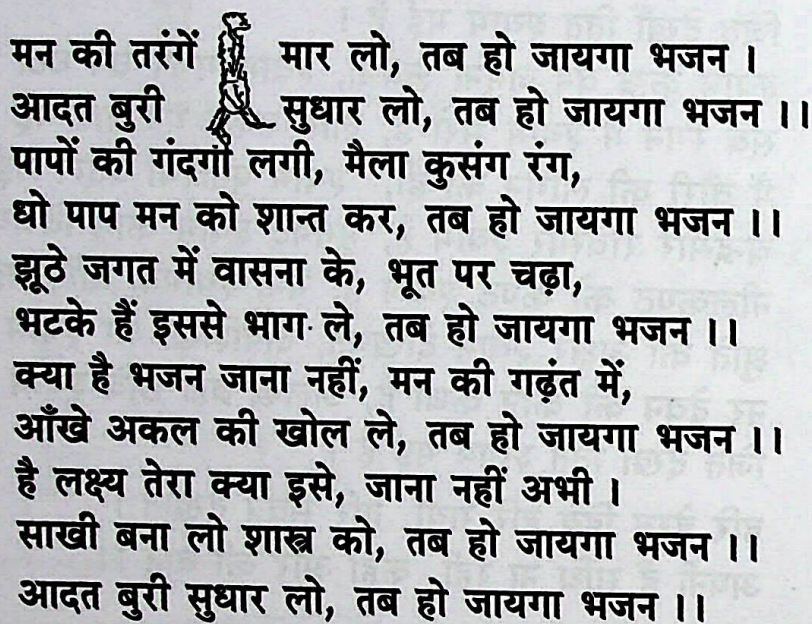 मन की तरंगें मार लो, तब हो जायगा भजन ।
आदत बुरी सुधार लो, तब हो जायगा भजन ।।
पापों की गंदगी लगी, मैला कुसंग रंग,
धो पाप मन को शान्त कर, तब हो जायगा भजन ।।
झूठे जगत में वासना के, भूत पर चढ़ा,
भटके हैं इससे भाग ले, तब हो जायगा भजन ।।
क्या है भजन जाना नहीं, मन की गढ़ंत में,
आँखे अकल की खोल ले, तब हो जायगा भजन ।।
है लक्ष्य तेरा क्या इसे, जाना नहीं अभी ।
साखी बना लो शास्त्र को, तब हो जायगा भजन ।।
आदत बुरी सुधार लो, तब हो जायगा भजन ।।